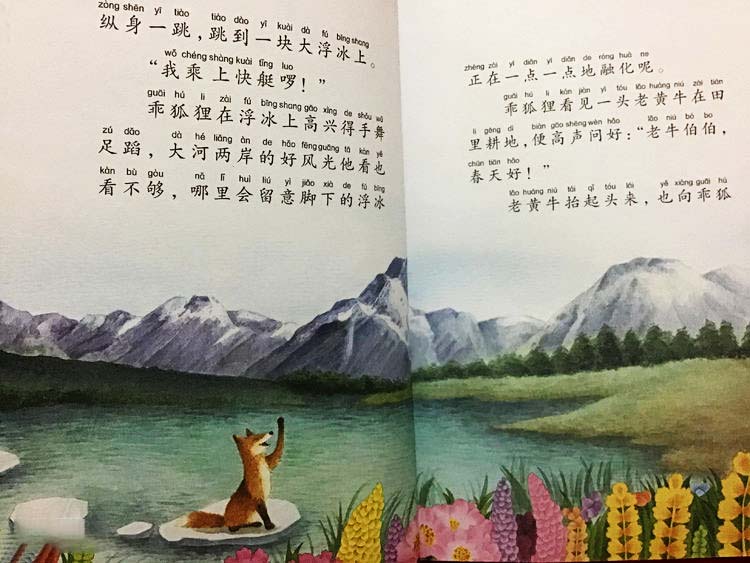 zòng shēn yī tiào tiào dào yī kuài dà fú bīng shang
纵身一跳，跳到一块大浮冰上。
wǒ chéng shàng kuài tǐng luo
“我乘上快艇啰！”
guāi hú li zài fú bīng shang gāo xìng de shǒu wǔ
乖狐狸在浮冰上高兴得手舞
zú dǎo dà hé liǎng àn de hǎo fēng guāng tā kàn yě
足蹈，大河两岸的好风光他看也
kàn bù gòu nǎ lǐ huì liú yì jiǎo xià de fú bīng
看不够，哪里会留意脚下的浮冰
zhèng zài yì diǎn yì diǎn de róng huà ne
正在一点一点地融化呢。
guāi hú li kàn jiàn yì tóu lǎo huáng niú zài tián
乖狐狸看见一头老黄牛在田
li gēng dì biàn gāo shēng wèn hǎo lǎo niú bó bo
里耕地，便高声问好：“老牛伯伯，
chūn tiān hǎo
春天好！”
lǎo huáng niú tái qǐ tóu lái yě xiàng guāi hú
老黄牛抬起头来，也向乖狐